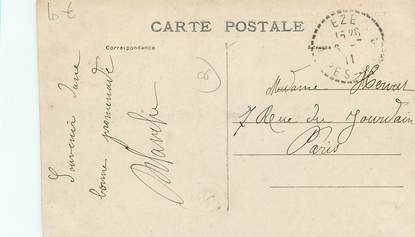 CARTE POSTALE
Correspondance
Adresse
EZE
11
Souvenir d'une
bonne promenade
Madame Hervet
7 Rue du Jourdain
Paris